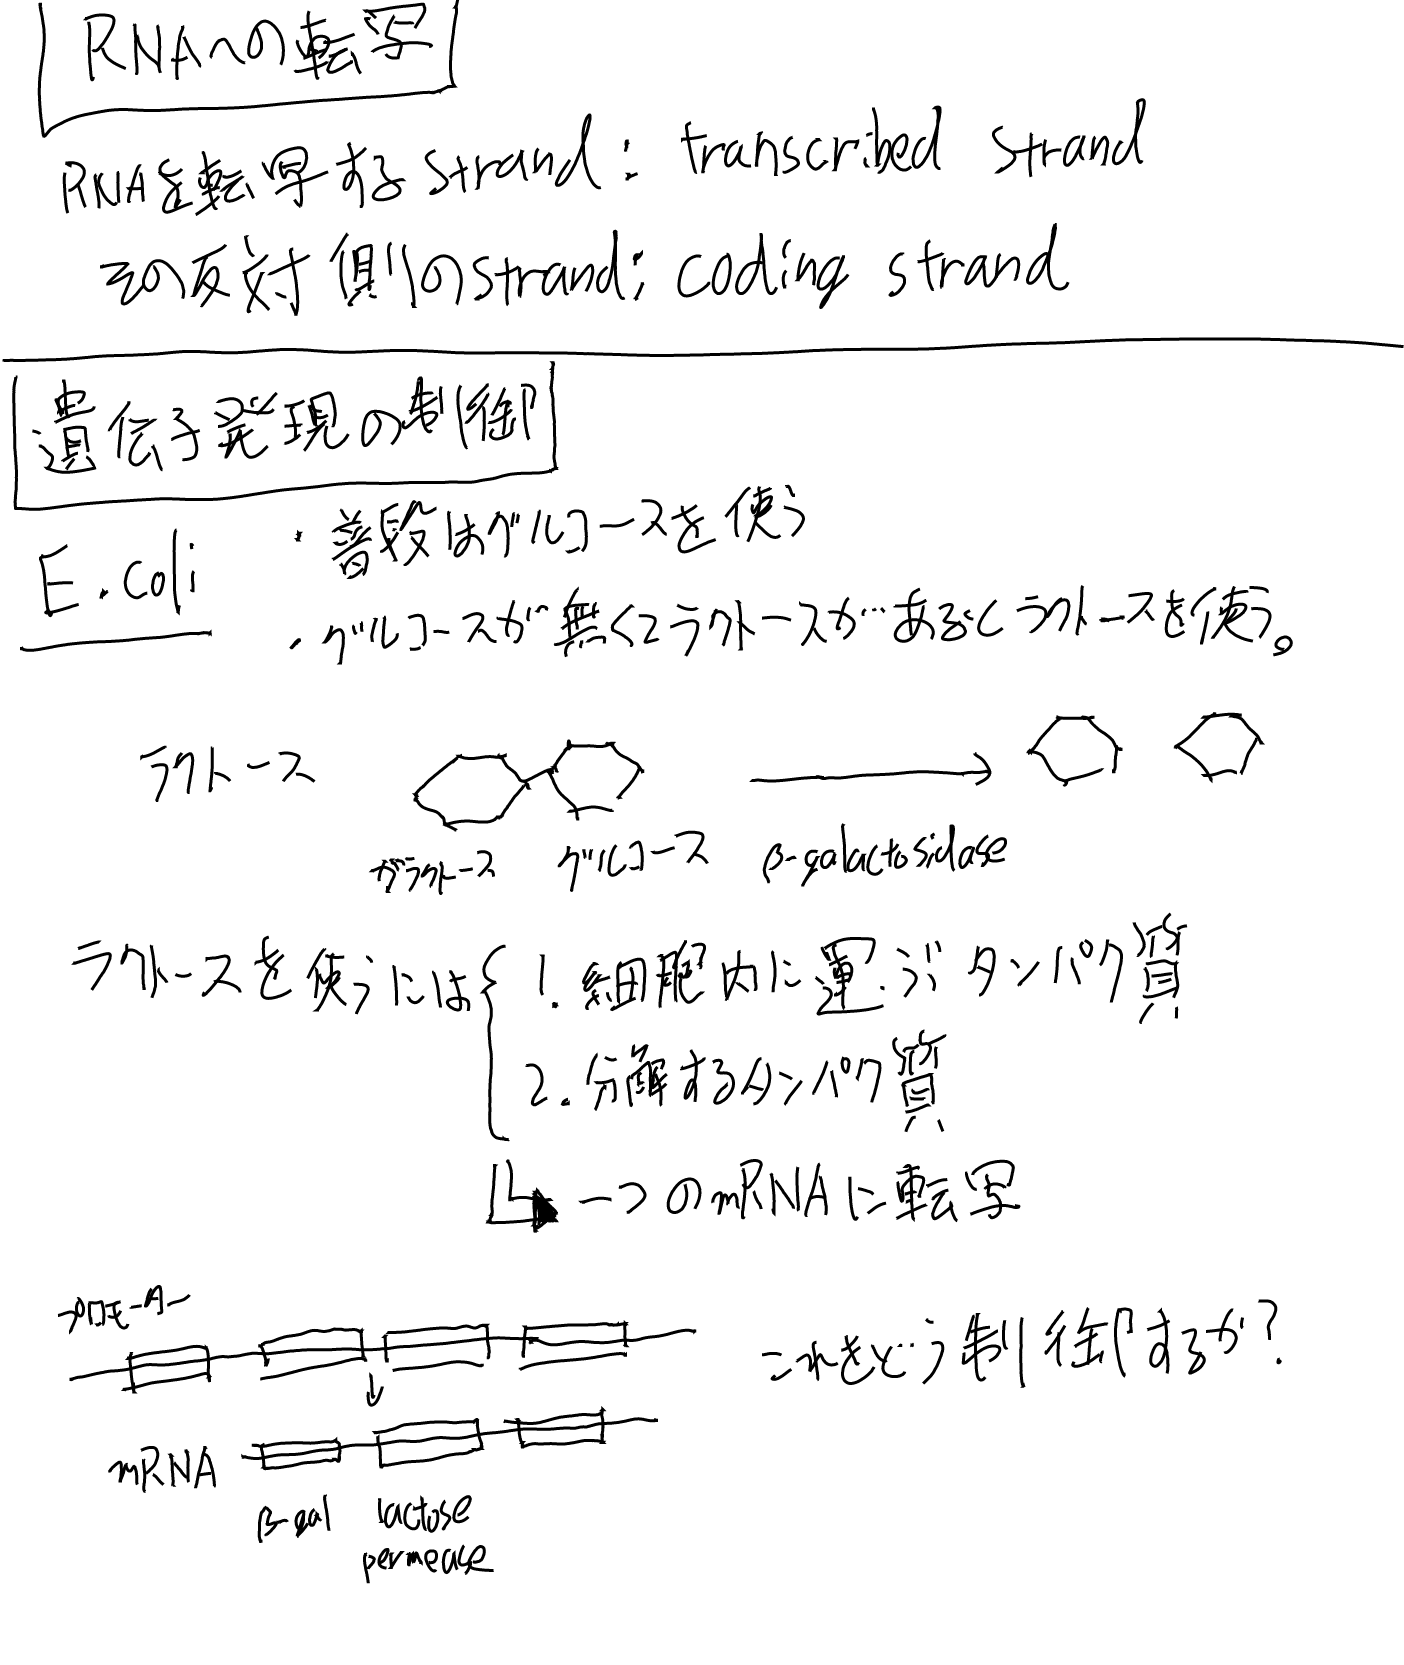 RNAへの転写
RNAを転写するstrand: transcribed strand
その反対側のstrand: coding strand
遺伝子発現の制御
E.coli
・普段はグルコースを使う
・グルコースが無くてラクトースがあるとラクトースを使う。
ラクトース
ガラクトース グルコース β-galactosidase
ラクトースを使うには
1. 細胞内に運ぶタンパク質
2. 分解するタンパク質
一つのmRNAに転写
プロモーター
これをどう制御するか?
mRNA
β-gal lactose
permease